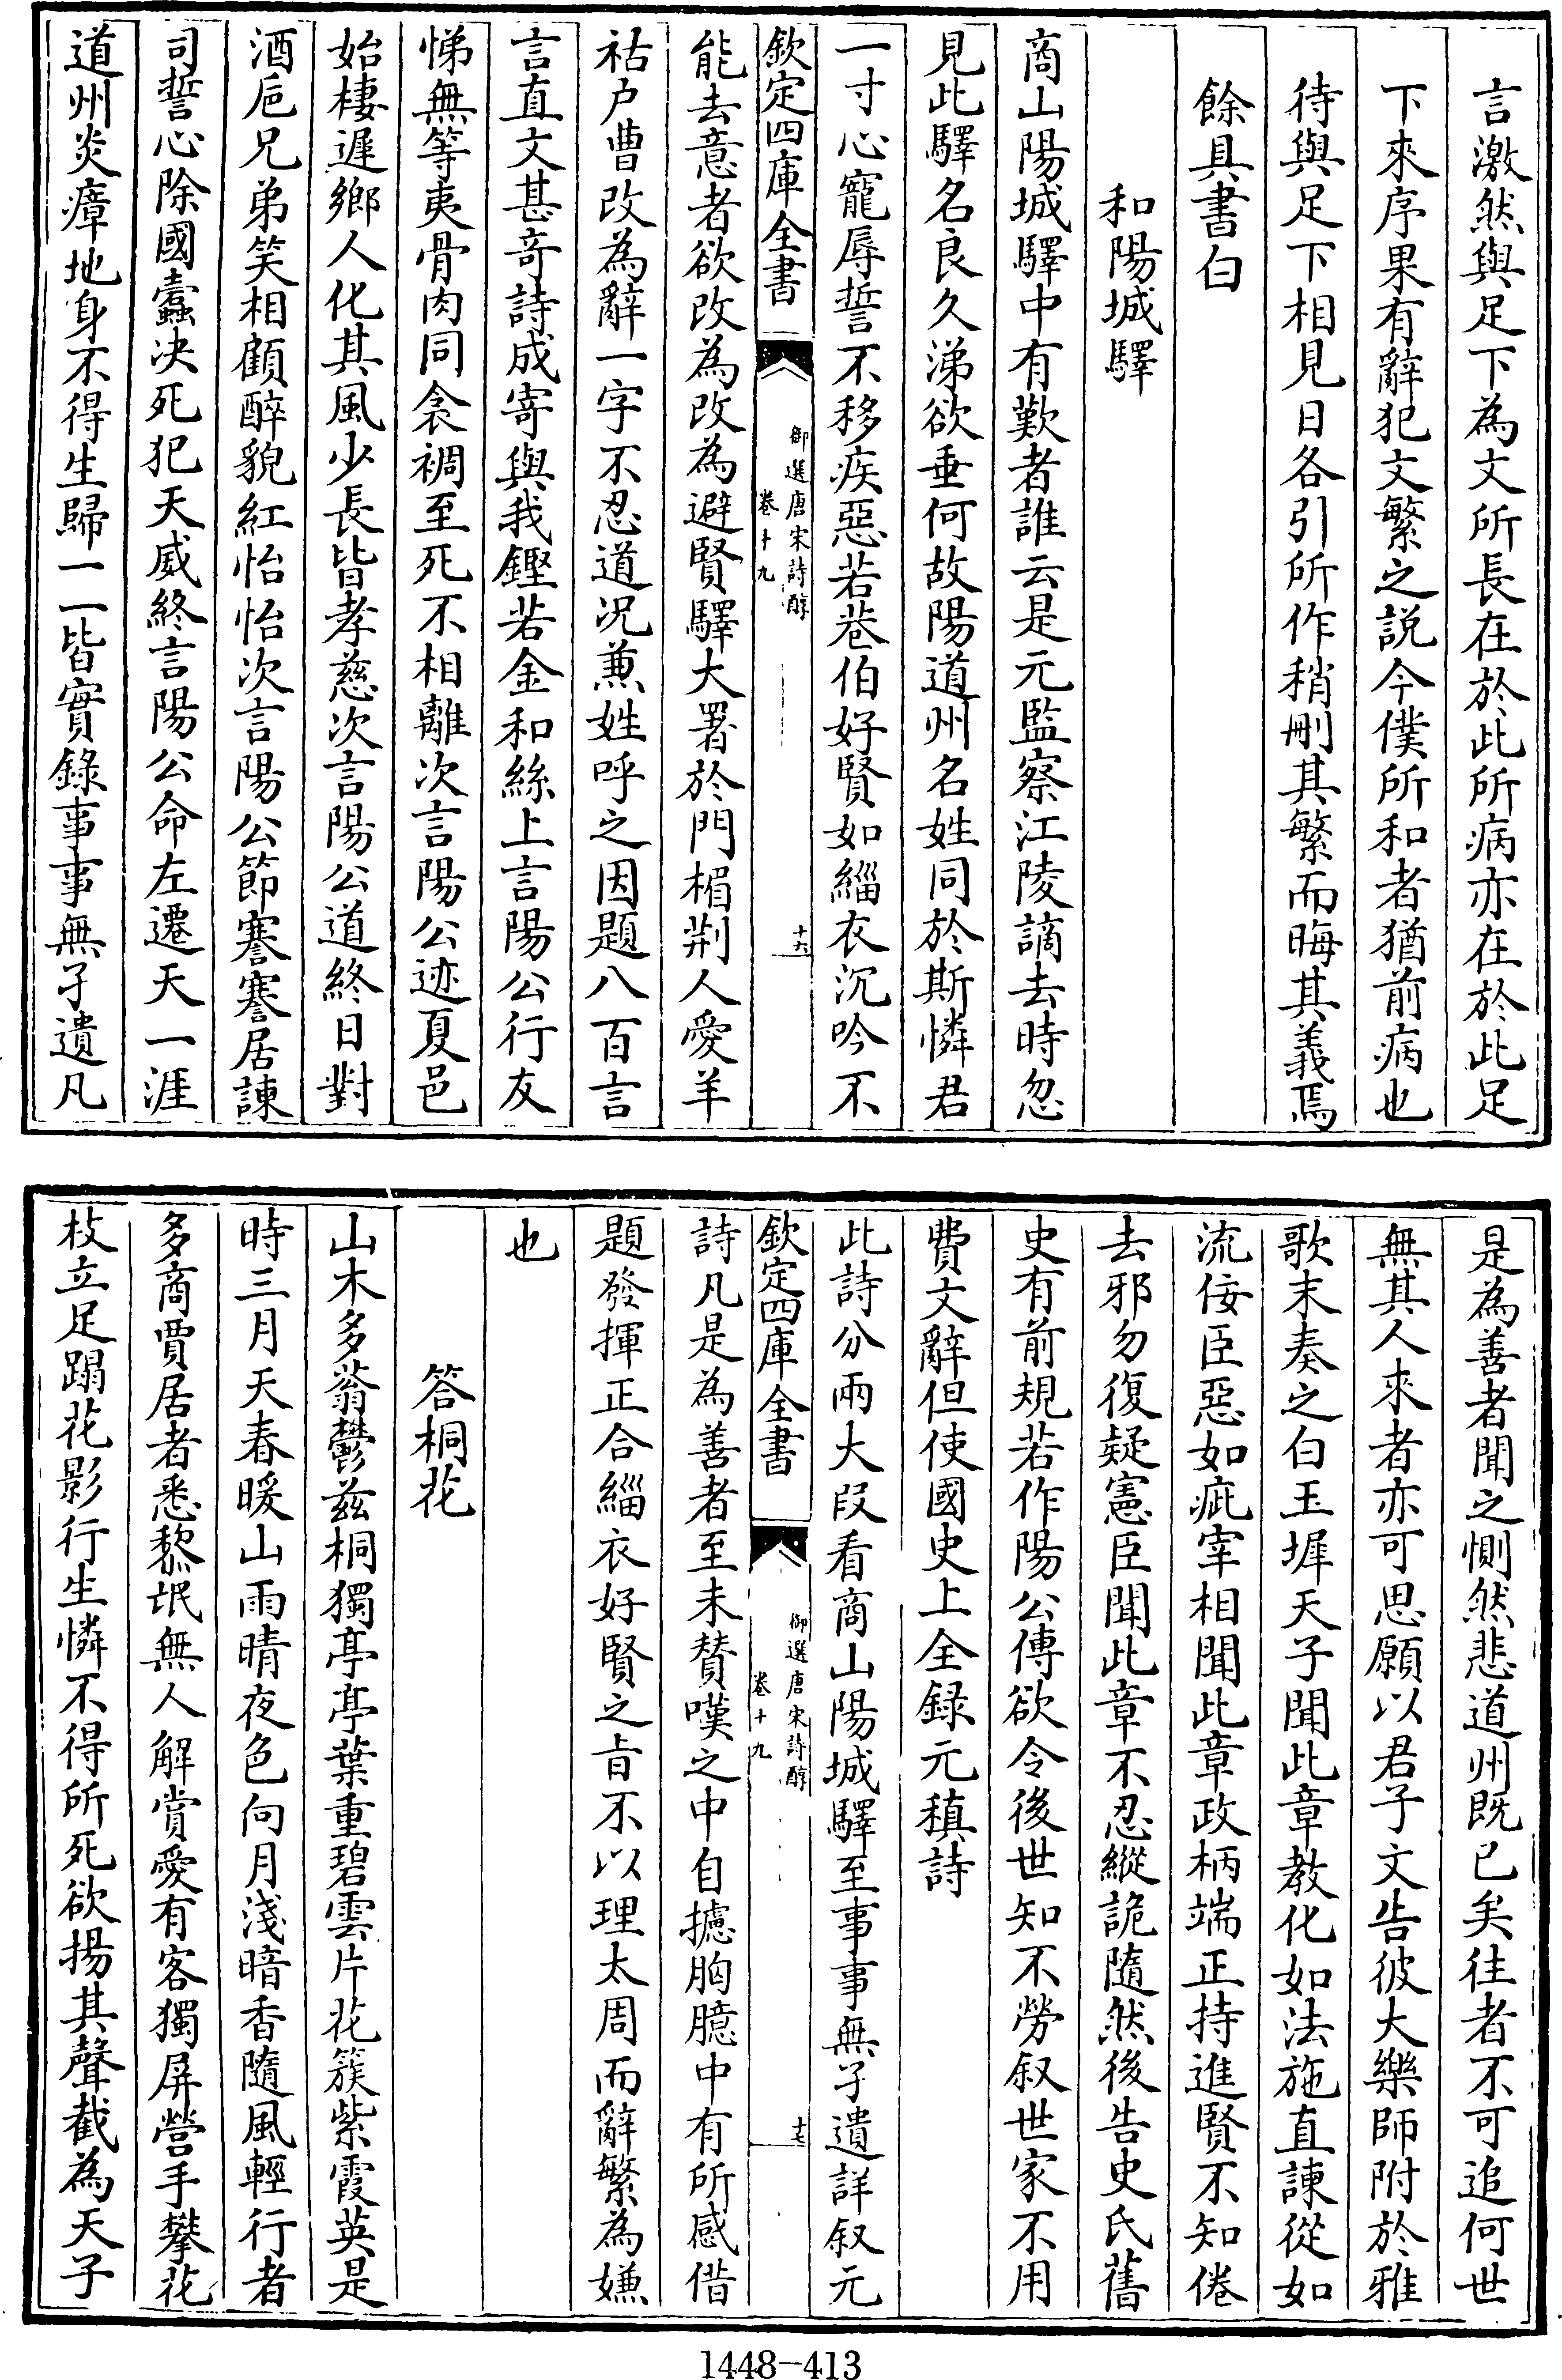 言激然與足下為文所長在於此所病亦在於此足
下來序果有辭犯文繁之說今僕所和者猶前病也
待與足下相見日各引所作稍刪其繁而晦其義焉
餘具書白
和陽城驛
商山陽城驛中有歎者誰云是元監察江陵謫去時忽
見此驛名良久涕欲垂何故陽道州名姓同於斯憐君
一寸心寵辱誓不移疾惡若巷伯好賢如緇衣沉吟不
欽定四庫全書
御選唐宋詩醇
卷十九
十六
能去意者欲改為改為避賢驛大署於門楣荆人愛羊
祜户曹改為辭一字不忍道況兼姓呼之因題八百言
言直文甚竒詩成寄與我鏗若金和絲上言陽公行友
悌無等夷骨肉同衾裯至死不相離次言陽公迹夏邑
始棲遲鄉人化其風少長皆孝慈次言陽公道終日對
酒巵兄弟笑相顧醉貌紅怡怡次言陽公節謇謇居諫
司誓心除國蠹决死犯天威終言陽公命左遷天一涯
道州炎瘴地身不得生歸一一皆實錄事事無孑遺凡
是為善者聞之惻然悲道州既已矣往者不可追何世
無其人來者亦可思願以君子文告彼大樂師附於雅
歌末奏之白玉墀天子聞此章教化如法施直諫從如
流佞臣惡如疵宰相聞此章政柄端正持進賢不知倦
去邪勿復疑憲臣聞此章不忍縱詭隨然後告史氏舊
史有前規若作陽公傳欲令後世知不勞叙世家不用
費文辭但使國史上全録元稹詩
此詩分兩大段看商山陽城驛至事事無孑遺詳叙元
欽定四庫全書
御選唐宋詩醇
卷十九
十七
詩凡是為善者至未贊嘆之中自攄胸臆中有所感借
題發揮正合緇衣好賢之㫖不以理太周而辭繁為嫌
也
答桐花
山木多蓊鬱兹桐獨亭亭葉重碧雲片花簇紫霞英是
時三月天春暖山雨晴夜色向月淺暗香隨風輕行者
多商賈居者悉黎氓無人解賞愛有客獨屏營手攀花
枝立足蹋花影行生憐不得所死欲揚其聲截為天子
1448-413